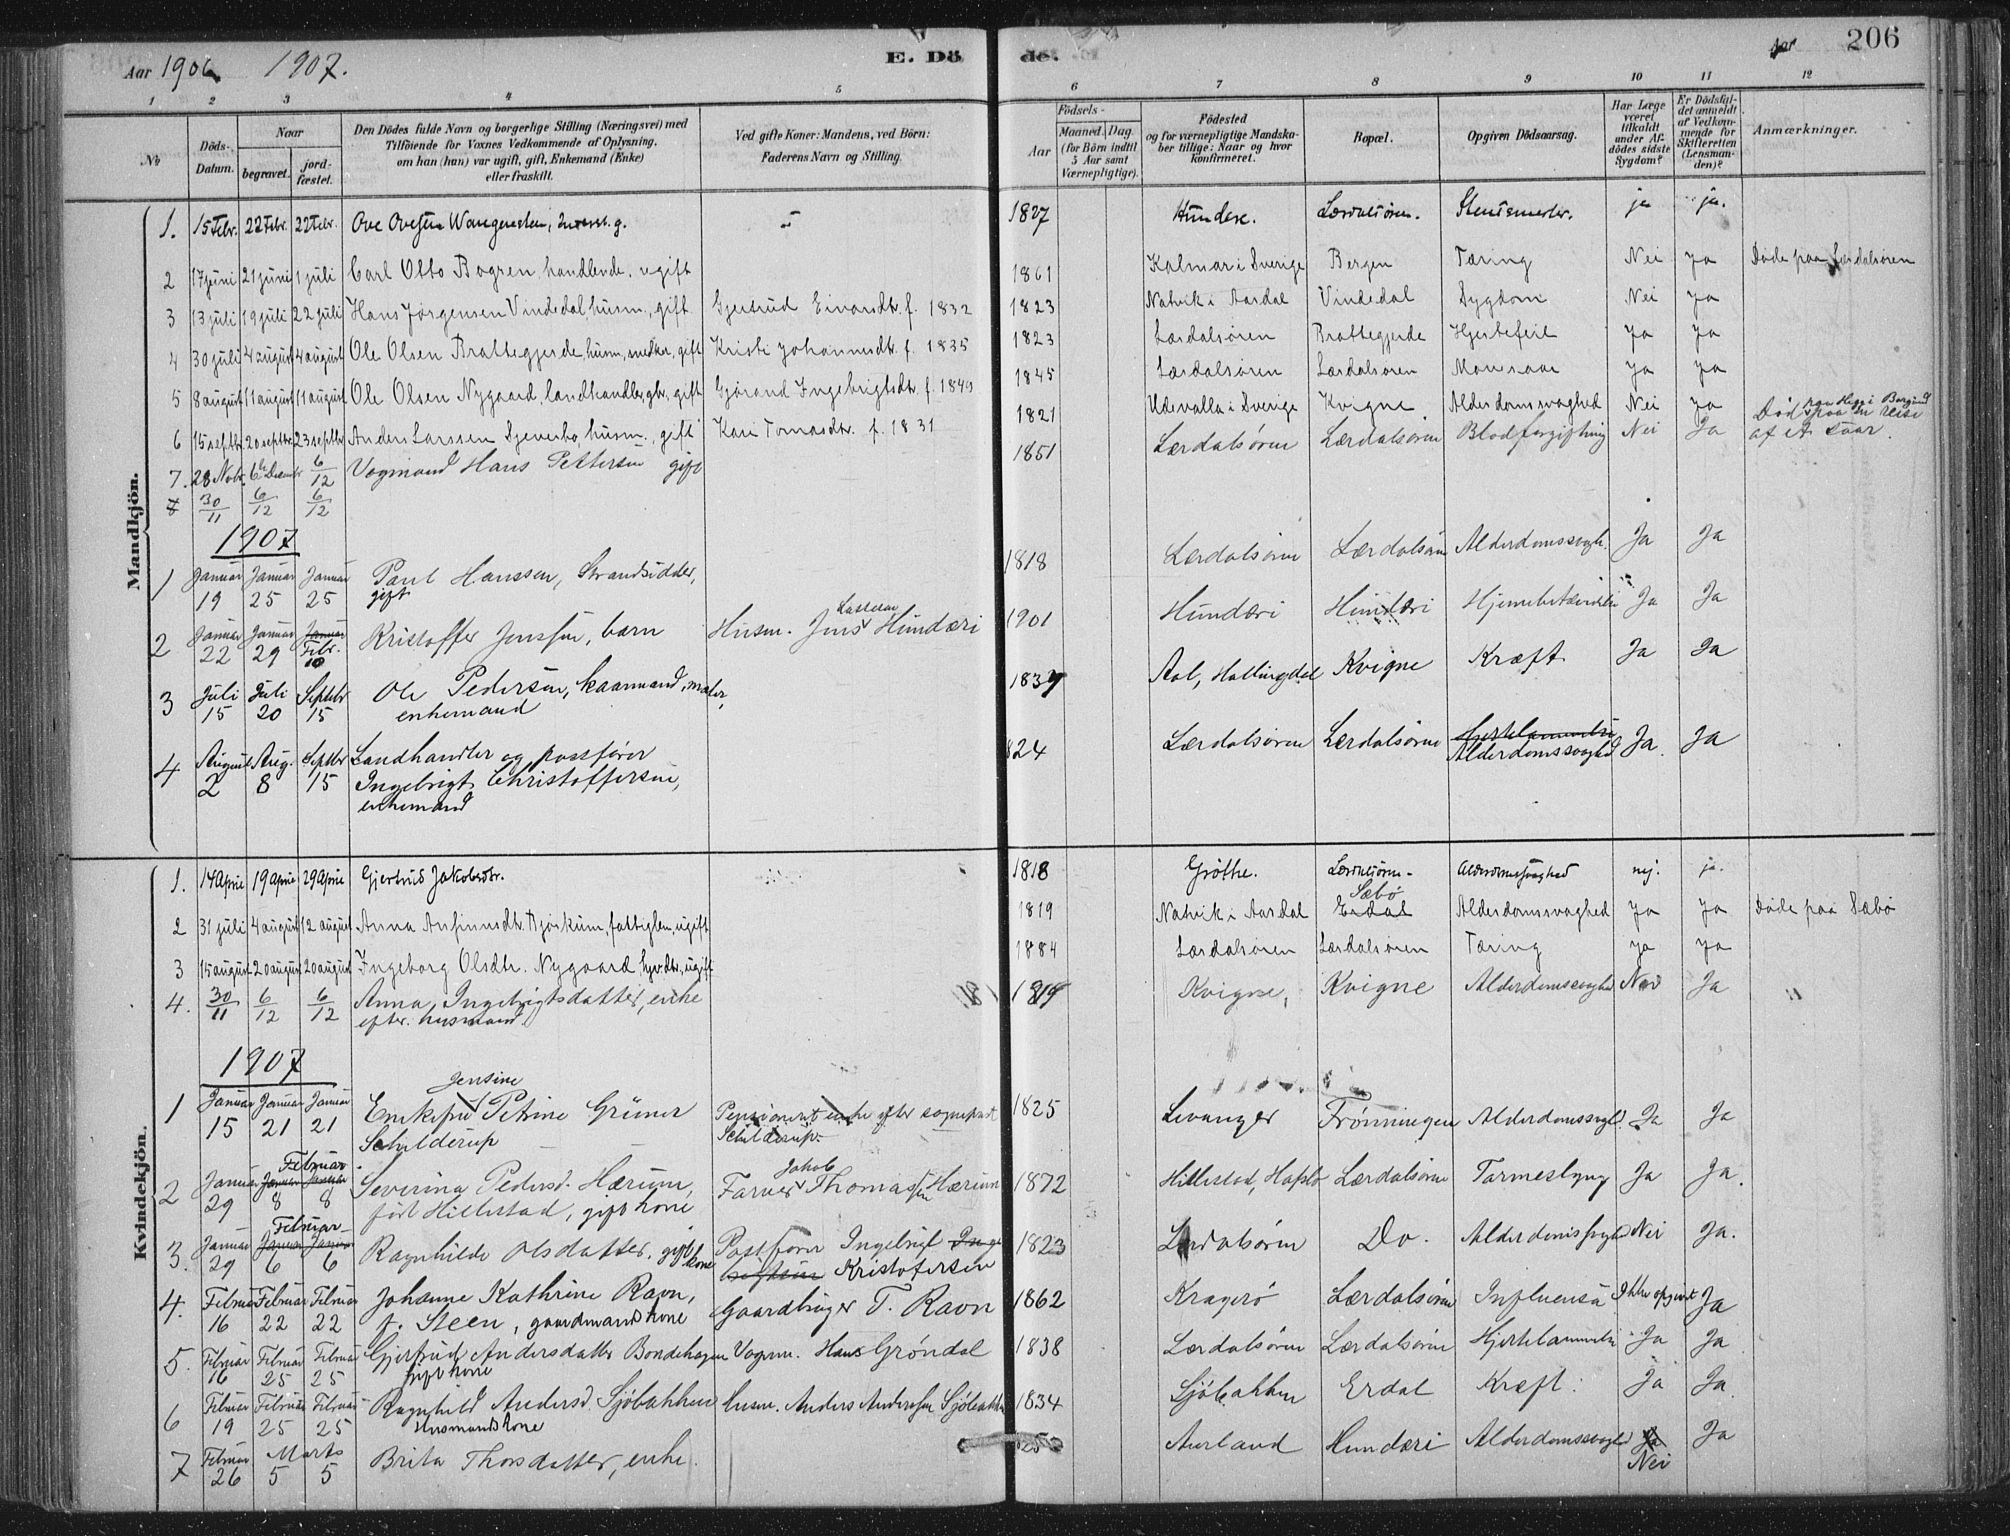 Aar 1906 1907. E. Dö de. Aar 206
1 2 3 4 5 6 7 8 9 10 11 12
No
Döds-Datum.
Naar
begravet. jord-fæstet.
Den Dödes fulde Navn og borgerlige Stilling (Næringsvei) med
Tilföiende for Voxnes Vedkommende af Oplysning.
om han (hun) var ugift, gift, Enkemand (Enke)
eller fraskilt.
Ved gifte Koner: Mandens, ved Börn:
Faderens Navn og Stilling.
Födsels-
Aar Maaned. Dag.
(for Börn indtil
5 Aar samt
Værnepligtige).
Födested
og for værnepligtige Mandska-
ber tillige: Naar og hvor
konfirmeret.
Bopæl.
Opgiven Dödsaarsag.
Har Læge
været
tilkaldt
under Af-
dödes sidste
Sygdom?
Er Dödsfal-
det anmeldt
af Vedkom-
mende for
Skifteretten
(Lensman-
den)?
Anmærkninger.
Mandkjön.
1. 15 Febr. 22 Febr. 22 Febr. Ove Ovesen Wangensteen, g. 1827 Hundere. Lærdalsören. ja ja.
2 17 juni 21 juni 1 juli Carl Otto Bogren, handlende, ugift 1861 Kalmar i Sverige Bergen Tæring Nei ja Döde paa Lærdalsören
3 13 juli 19 juli 22 juli Hans Jörgensen Vindedal, husm., gift Gjertrud Eivindsdtr. f. 1832 1823 Natvik i Aardal Vindedal Sygdom Nei ja
4 30 juli 4 august 4 august Ole Olsen Brattegjerde, husm., snedker, gift Kristi Johannesdtr. f. 1835 1823 Lærdalsören Brattegjerde Hjertefeil Ja Ja
5 8 august 11 august 11 august Ole Olsen Nygaard, landhandler, gbr., gift Gjörond Ingebrigtsdtr. f. 1849 1845 Lærdalsören Lærdalsören Ja ja
6 15 septbr 20 septbr 23 septbr Anders Larssen husm., gift Kari Tomasdtr. f. 1831 1821 Udevalla i Sverige Kvigne Alderdomssvaghed Nei Ja
7. 28 Novbr. 6te Decembr 6/12 Vogmand Hans Pettersen gift 1851 Lærdalsören Lærdalsören Blodforgiftning Nei Ja Död paa Hegg i Borgund paa en reise
af et saar.
8 30/11 6/12 6/12
1907
1 Januar 19 Januar 25 Januar 25 Paul Hanssen, Strandsidder,
gift 1818 Lærdalsören Lærdalsören Alderdomssvagh. Ja Ja
2 Januar 22 Januar 29 Januar Febr. 10 Kristoffer Jenssen, barn Husm. Jens Hundæri 1901 Hundæri Hundæri Hjernebetændelse Ja Ja
3 Juli 15 Juli 20 Septbr 15 Ole Pedersen, kaarmand, maler,
enkemand Aal, Hallingdal Kvigne Kræft Ja Ja
4 August 2 Aug. 8 Septbr 15 Landhandler og postförer
Ingebrigt Christoffersen,
enkemand 824 Lærdalsören Lærdalsören Hjertelammelse
Alderdomssvaghed Ja. Ja
Kvindekjön.
1. 14 April 19 April 29 April Gjertrud Jakobsdtr. 1818 Gröthe. Lærdalsören. Alderdomssvaghed nej. ja.
2 31 juli 4 august 12 august Anna Anfinnsdtr. Bjöskum, fattiglem, ugift 1819 Natvik i Aardal Erdal Sæbö Alderdomssvaghed Ja Ja Döde paa Sæbö
3 15 august 20 august 20 august Ingeborg Olsdtr. Nygaard, ugift 1884 Lærdalsören Lærdalsören Tæring ja ja
4. 30/11 6/12 6/12 Anna Ingebrigtsdatter, enke
efter husmand. 18 1819 Kvigne, Kvigne Alderdomssvaghed Nei Ja "
1907
1 Januar 15 Januar 21 Januar 21 Enkefru Jensine Petrine Grüner
Schilderup Pensioneret enke efter sogneprest
Schilderup. 1825 Levanger Frönningen Alderdomssvagh. Ja Ja
2 Januar 29 Januar Januar Februar 8 8 Severina Pedersd. Hærum,
föd Hillestad, gift kone Farver Jakob Thomassen Hærum 1872 Hillestad, Hafslo Lærdalsören Tarmeslyng Ja Ja.
3. Januar 29 Januar Januar Februar 6 6 Ragnhilde Olsdatter, gift kone Postförer Ingebrigt
Kristofersen 1823 Lærdalsören Do. Alderdomssvaghed Nei Ja.
4. Februar 16 Februar 22 Februar 22 Johanne Kathrine Ravn,
f. Steen, gaardmandskone Gaardbruger T. Ravn 1862 Kragerö Lærdalsören Influensa Ikke opgivet Ja
5. Februar 16 Februar 25 Februar 25 Gjertrud Andersdatter Bondehagen
gift kone Vogm. Hans Gröndal 1838 Lærdalsören Lærdalsören Hjertelammelse Ja Ja
6 Februar 19 Februar 25 Februar 25 Ragnhild Andersd. Sjöbakken
Husmandskone Husm. Anders Anderssen Sjöbakken 1834 Sjöbakken Erdal Kræft. Ja Ja.
7 Februar 26 Marts 5 5 Brita Thorsdatter, enke. 25 Aurland Hundæri Alderdomssvaghed Ja
Nei Ja